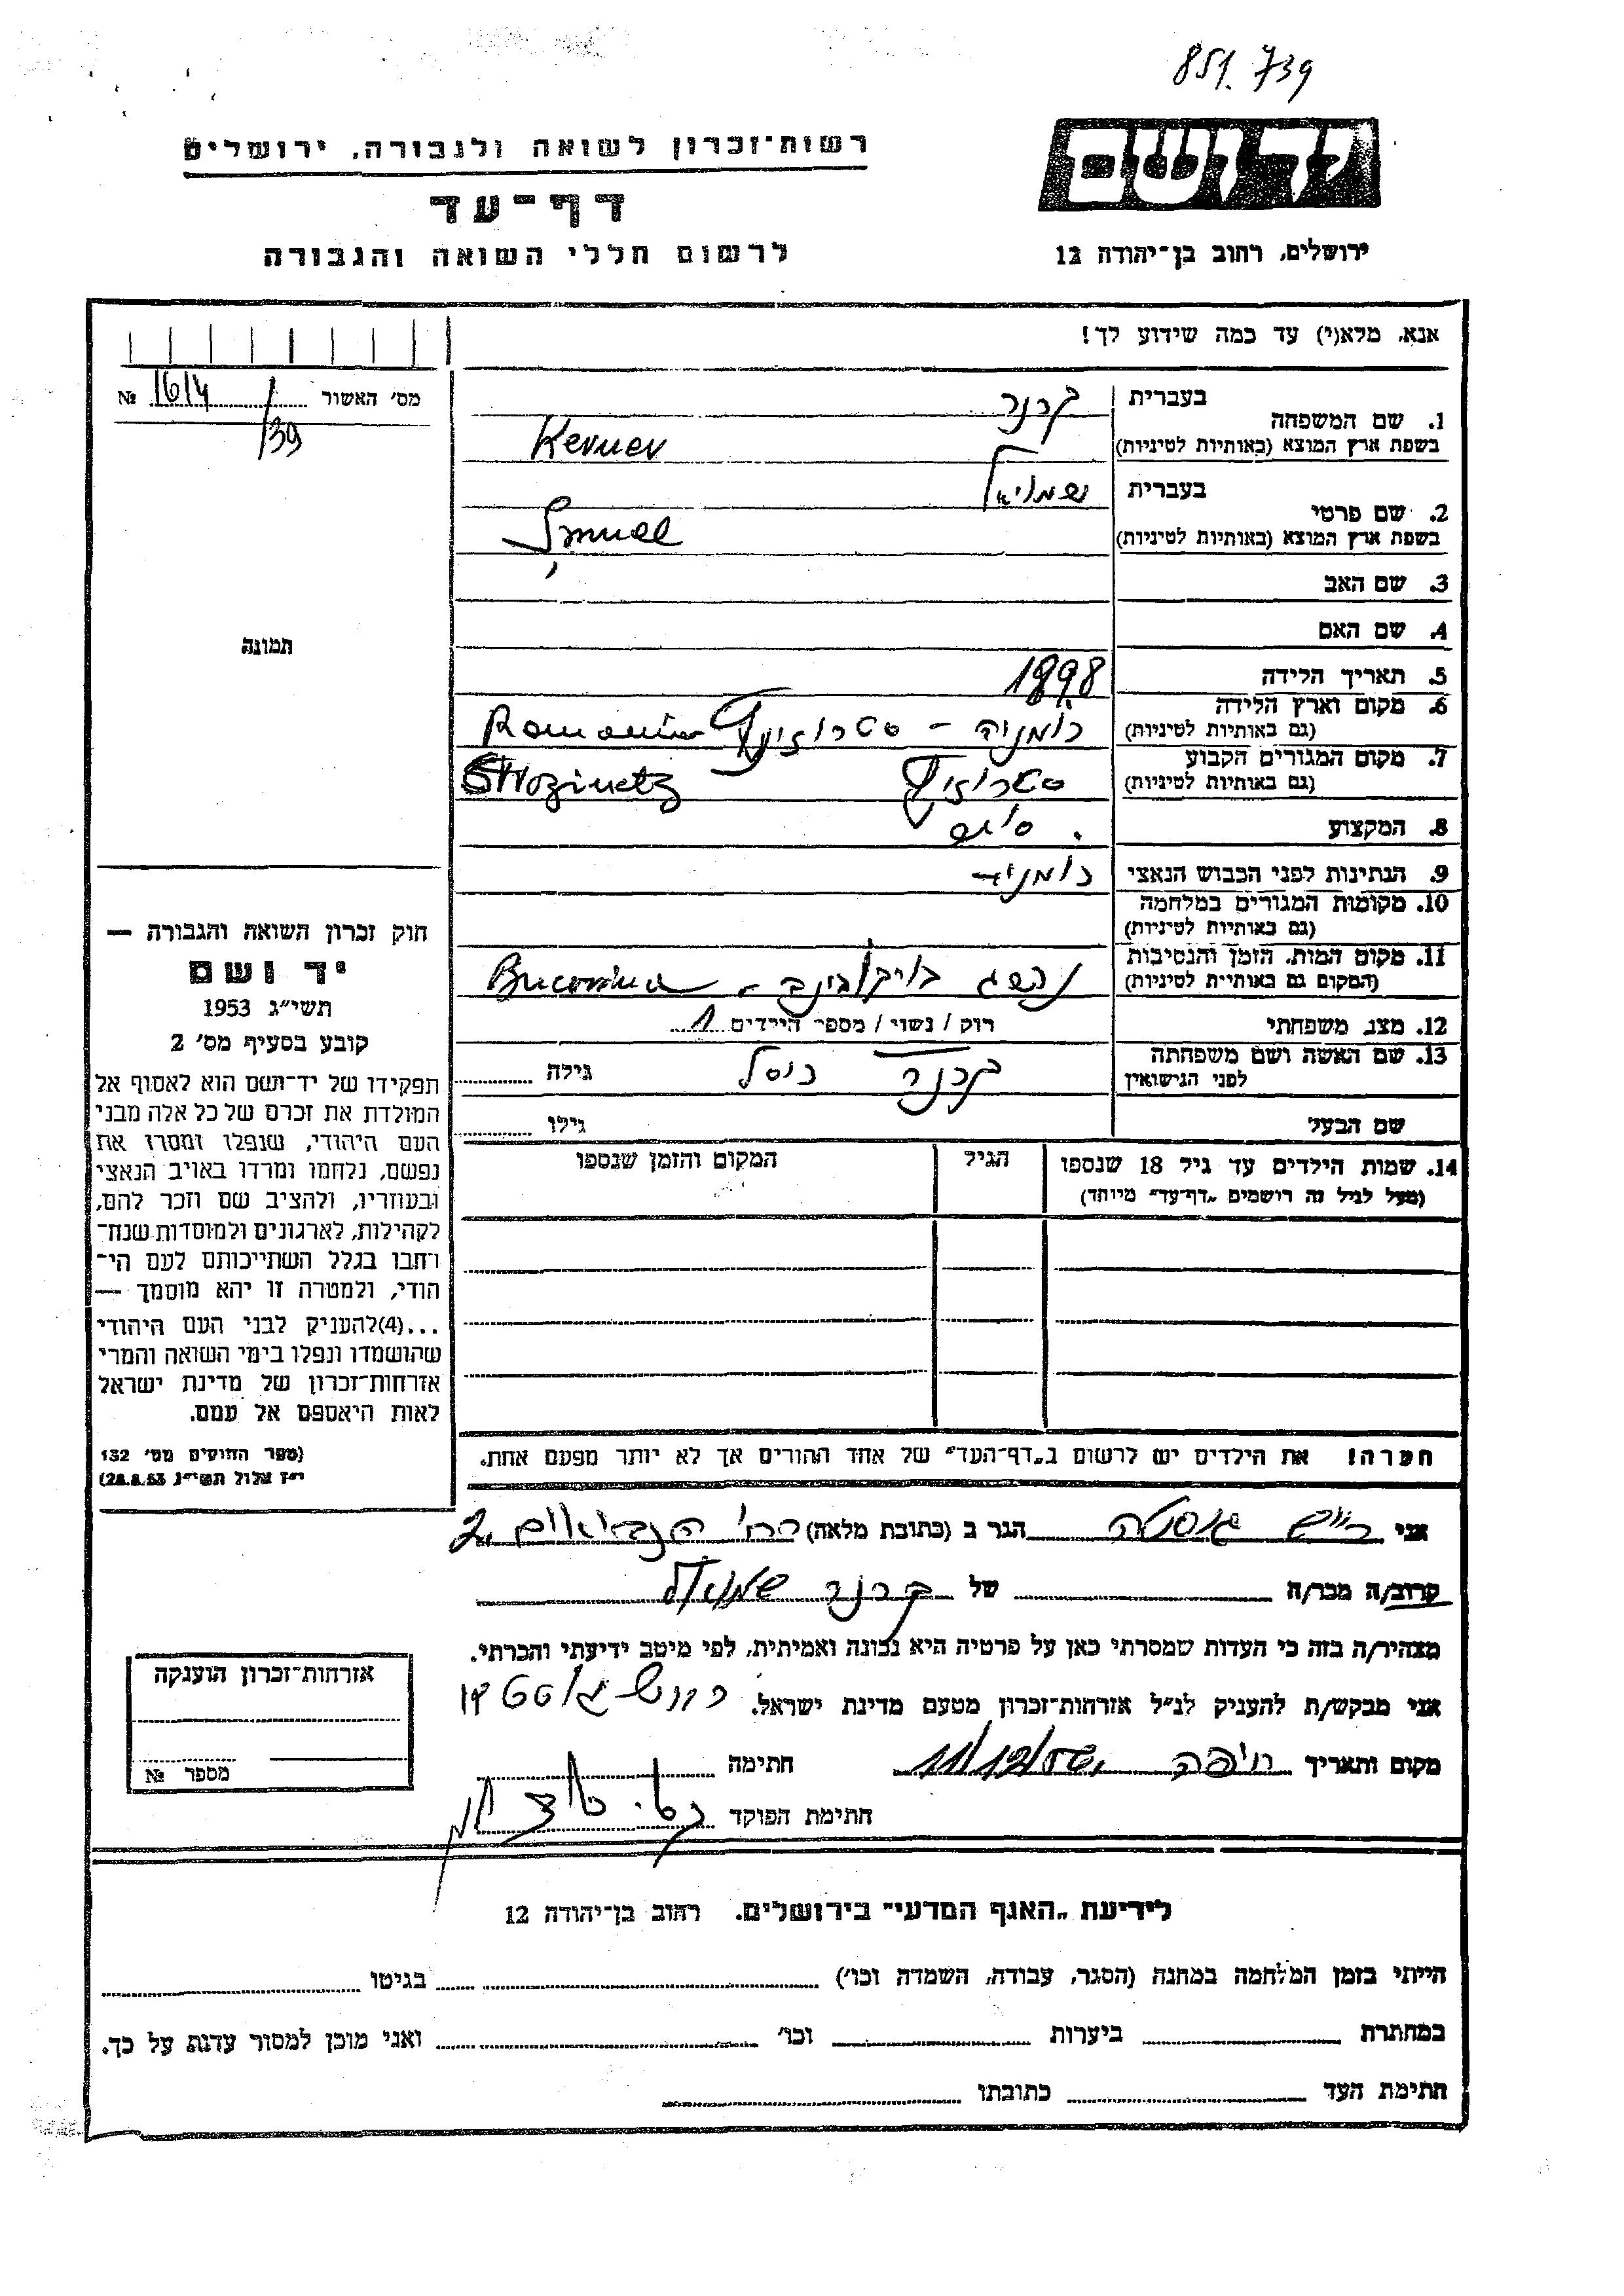 851.739
יד ושם
ירושלים, רחוב בן־יהודה 12
רשות־זכרון לשואה ולגבורה, ירושלים
דף־עד
לרשום חללי השואה והגבורה
אנא, מלא(י) עד כמה שידוע לך!
מס׳ האשור 1614 №
/39
1. שם המשפחה
בעברית קרנר
בשפת ארץ המוצא (באותיות לטיניות) Kerner
2. שם פרטי
בעברית שמואל
בשפת ארץ המוצא (באותיות לטיניות) Şmuel
3. שם האב
4. שם האם
5. תאריך הלידה 1898
6. מקום וארץ הלידה
(גם באותיות לטיניות) רומניה – Romania
7. מקום המגורים הקבוע
(גם באותיות לטיניות) Strozinetz
8. המקצוע
9. הנתינות לפני הכבוש הנאצי
10. מקומות המגורים במלחמה
(גם באותיות לטיניות)
11. מקום המות, הזמן והנסיבות
(המקום גם באותיות לטיניות)
12. מצב משפחתי רוק / נשוי / מספר הילדים 1
13. שם האשה ושם משפחתה
לפני הנישואין קרנר רוסל גילה
שם הבעל גילו
14. שמות הילדים עד גיל 18 שנספו הגיל המקום והזמן שנספו
(מעל לגיל זה רושמים „דף־עד״ מיוחד)
תמונה
חוק זכרון השואה והגבורה —
יד ושם
תשי״ג 1953
קובע בסעיף מס׳ 2
תפקידו של יד־ושם הוא לאסוף אל
המולדת את זכרם של כל אלה מבני
העם היהודי, שנפלו ומסרו את
נפשם, נלחמו ומרדו באויב הנאצי
ובעוזריו, ולהציב שם וזכר להם,
לקהילות, לארגונים ולמוסדות שנח־
רחבו בגלל השתייכותם לעם הי־
הודי, ולמטרה זו יהא מוסמך —
...(4)להעניק לבני העם היהודי
שהושמדו ונפלו בימי השואה והמרי
אזרחות־זכרון של מדינת ישראל
לאות היאספם אל עמם.
(ספר החוקים מס׳ 132
י״ז אלול תשי״ג 28.8.53)
חמרה! את הילדים יש לרשום ב„דף־העד״ של אחד ההורים אך לא יותר מפעם אחת.
אני גוסטה הגר ב (כתובת מלאה) רח׳ הנביאים 2
קרוב/ה מכר/ה של קרנר שמואל
מצהיר/ה בזה כי העדות שמסרתי כאן על פרטיה היא נכונה ואמיתית, לפי מיטב ידיעתי והכרתי.
אני מבקש/ת להעניק לנ״ל אזרחות־זכרון מטעם מדינת ישראל.
מקום ותאריך חיפה 11/12/ חתימה
חתימת הפוקד
אזרחות־זכרון הוענקה
מספר №
לידיעת „האגף המדעי״ בירושלים. רחוב בן־יהודה 12
הייתי בזמן המלחמה במחנה (הסגר, עבודה, השמדה וכו׳) בגיטו
במחתרת ביערות וכו׳ ואני מוכן למסור עדות על כך.
חתימת העד כתובתו